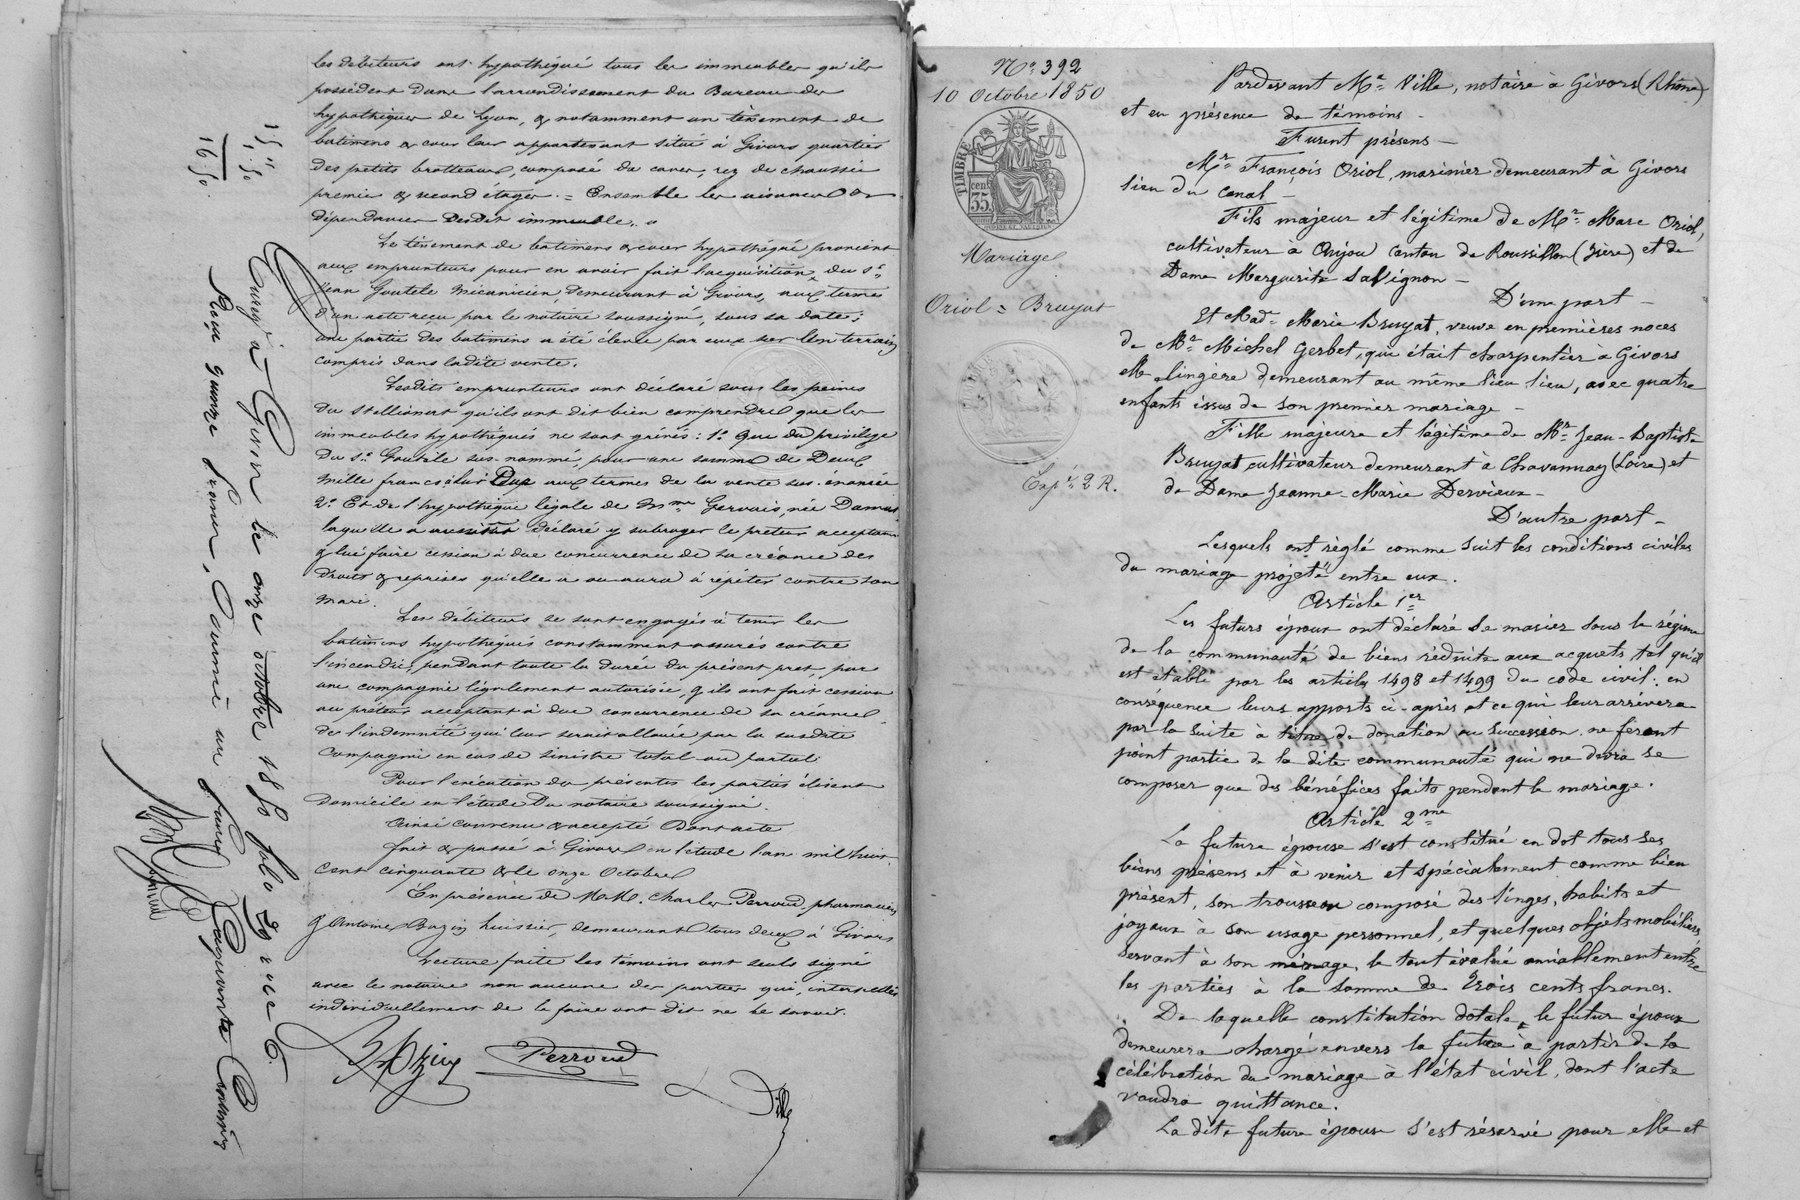 les débiteurs ont hypothéqué tous les immeubles qu'ils
possèdent dans l'arrondissement du Bureau des
hypothèques de Lyon, & notamment un tènement de
batimens & cour leur appartenant situé à Givors quartier
des petits brotteaux, composé de caves, rez de chaussée
premier & second étages. = Ensemble les aisances &
dépendances dudit immeuble.
Le tènement de batimens & cour hypothéqué provient
aux emprunteurs pour en avoir fait l'acquisition du sr
Jean Goutele mécanicien, demeurant à Givors, aux termes
d'un acte reçu par le notaire soussigné, sous sa date;
une partie des batimens a été élevée par eux sur le terrain
compris dans ladite vente.
Lesdits emprunteurs ont déclaré sous les peines
du stellionat qu'ils ont dit bien comprendre que les
immeubles hypothéqués ne sont grévés: 1° que du privilège
du sr Goutele sus-nommé, pour une somme de Deux
mille francs à lui Due aux termes de la vente sus-énoncée
2° Et de l'hypothèque légale de Mme Gervais, née Damas
laquelle a déclaré y subroger le prêteur acceptant
& lui faire cession à due concurrence de sa créance des
droits & reprises qu'elle a ou aura à répéter contre son
mari.
Les débiteurs se sont engagés à tenir les
batimens hypothéqués constamment assurés contre
l'incendie, pendant toute la durée du présent prêt, par
une compagnie légalement autorisée, & ils ont fait cession
au prêteur acceptant à due concurrence de sa créance
de l'indemnité qui leur serait allouée par la susdite
Compagnie en cas de sinistre total ou partiel.
Pour l'exécution des présentes les parties élisent
domicile en l'étude du notaire soussigné.
Ainsi convenu & accepté Dont acte
fait & passé à Givors en l'étude l'an mil huit
cent cinquante & le onze Octobre
En présence de MM. Charles Perroud, pharmacien
& Antoine Bazin huissier, demeurant tous deux à Givors
Lecture faite les témoins ont seuls signé
avec le notaire non aucune des parties qui, interpellées
individuellement de le faire ont dit ne le savoir.
Bazin Perroud
Ville
15,"50
1,"
16 50
Enregé à Givors le onze octobre 1850 folo 29 rue C 6.
Reçu quinze francs, Décime un franc Cinquante Centimes
No 392
10 Octobre 1850
TIMBRE
cent
35
Mariage
Oriol = Bruyat
Expé 2 R.
Pardevant Me Ville, notaire à Givors (Rhône)
et en présence de témoins -
Furent présens -
Mr François Oriol, marinier demeurant à Givors
lieu du Canal -
Fils majeur et légitime de Mr Marc Oriol,
cultivateur à Anjou Canton de Roussillon (Isère) et de
Dame Marguerite Salvignon -
D'une part -
Et Made Marie Bruyat, veuve en premières noces
de Mr Michel Gerbet, qui était charpentier à Givors
elle lingère demeurant au même lieu lieu, avec quatre
enfants issus de son premier mariage -
Fille majeure et légitime de Mr Jean-Baptiste
Bruyat cultivateur demeurant à Chavannay (Loire) et
de Dame Jeanne-Marie Dervieux -
D'autre part -
Lesquels ont règlé comme suit les conditions civiles
du mariage projeté entre eux.
Article 1er
Les futurs époux ont déclaré se marier sous le régime
de la communauté de biens réduite aux acquets tel qu'il
est établi par les articles 1498 et 1499 du code civil: en
conséquence leurs apports ci-après et ce qui leur arrivera
par la suite à titre de donation ou succession ne feront
point partie de la dite communauté qui ne devra se
composer que des bénéfices faits pendant le mariage.
Article 2me
La future épouse s'est constitué en dot tous ses
biens présens et à venir et spécialement comme bien
présent, son trousseau composé des linges, habits et
joyaux à son usage personnel, et quelques objets mobiliers
servant à son ménage, le tout évalué amiablement entre
les parties à la somme de Trois cents francs.
De laquelle constitution dotale, le futur époux
demeurera chargé envers la future à partir de la
célébration du mariage à l'état civil, dont l'acte
vaudra quittance.
La dite future épouse s'est réservé pour elle et